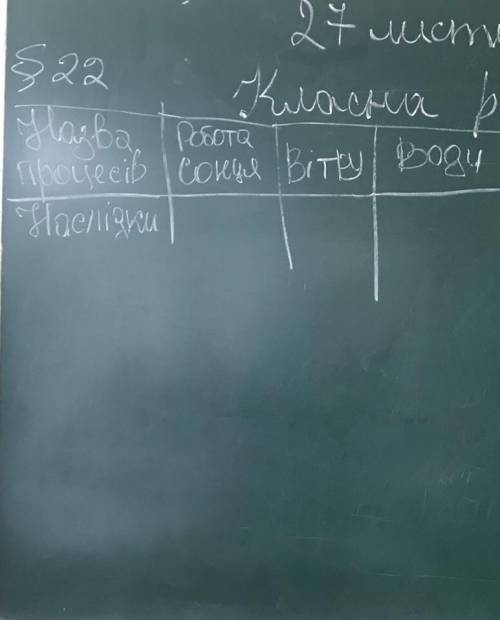 27 лист
§ 22
Класна р
Назва процесів Робота сонця Вітру Води
Наслідки